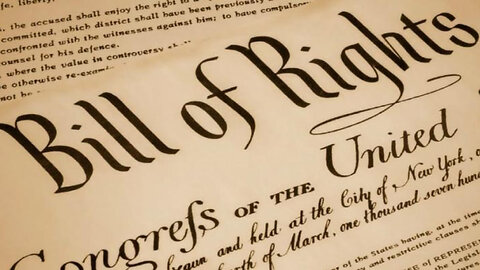 fe, liberty,
, the accused shall enjoy the right to a
committed, which district shall have been previously
confronted with the witnesses against him; to have compulsory
counsel for his defence.
where the value in controversy shall
be otherwise re-exam
not be
Bill of Rights
Congreſs OF THE United
begun and held at the City of New York, o
th of March, one thousand seven hund
of the States having, at the time
and restrictive clauses